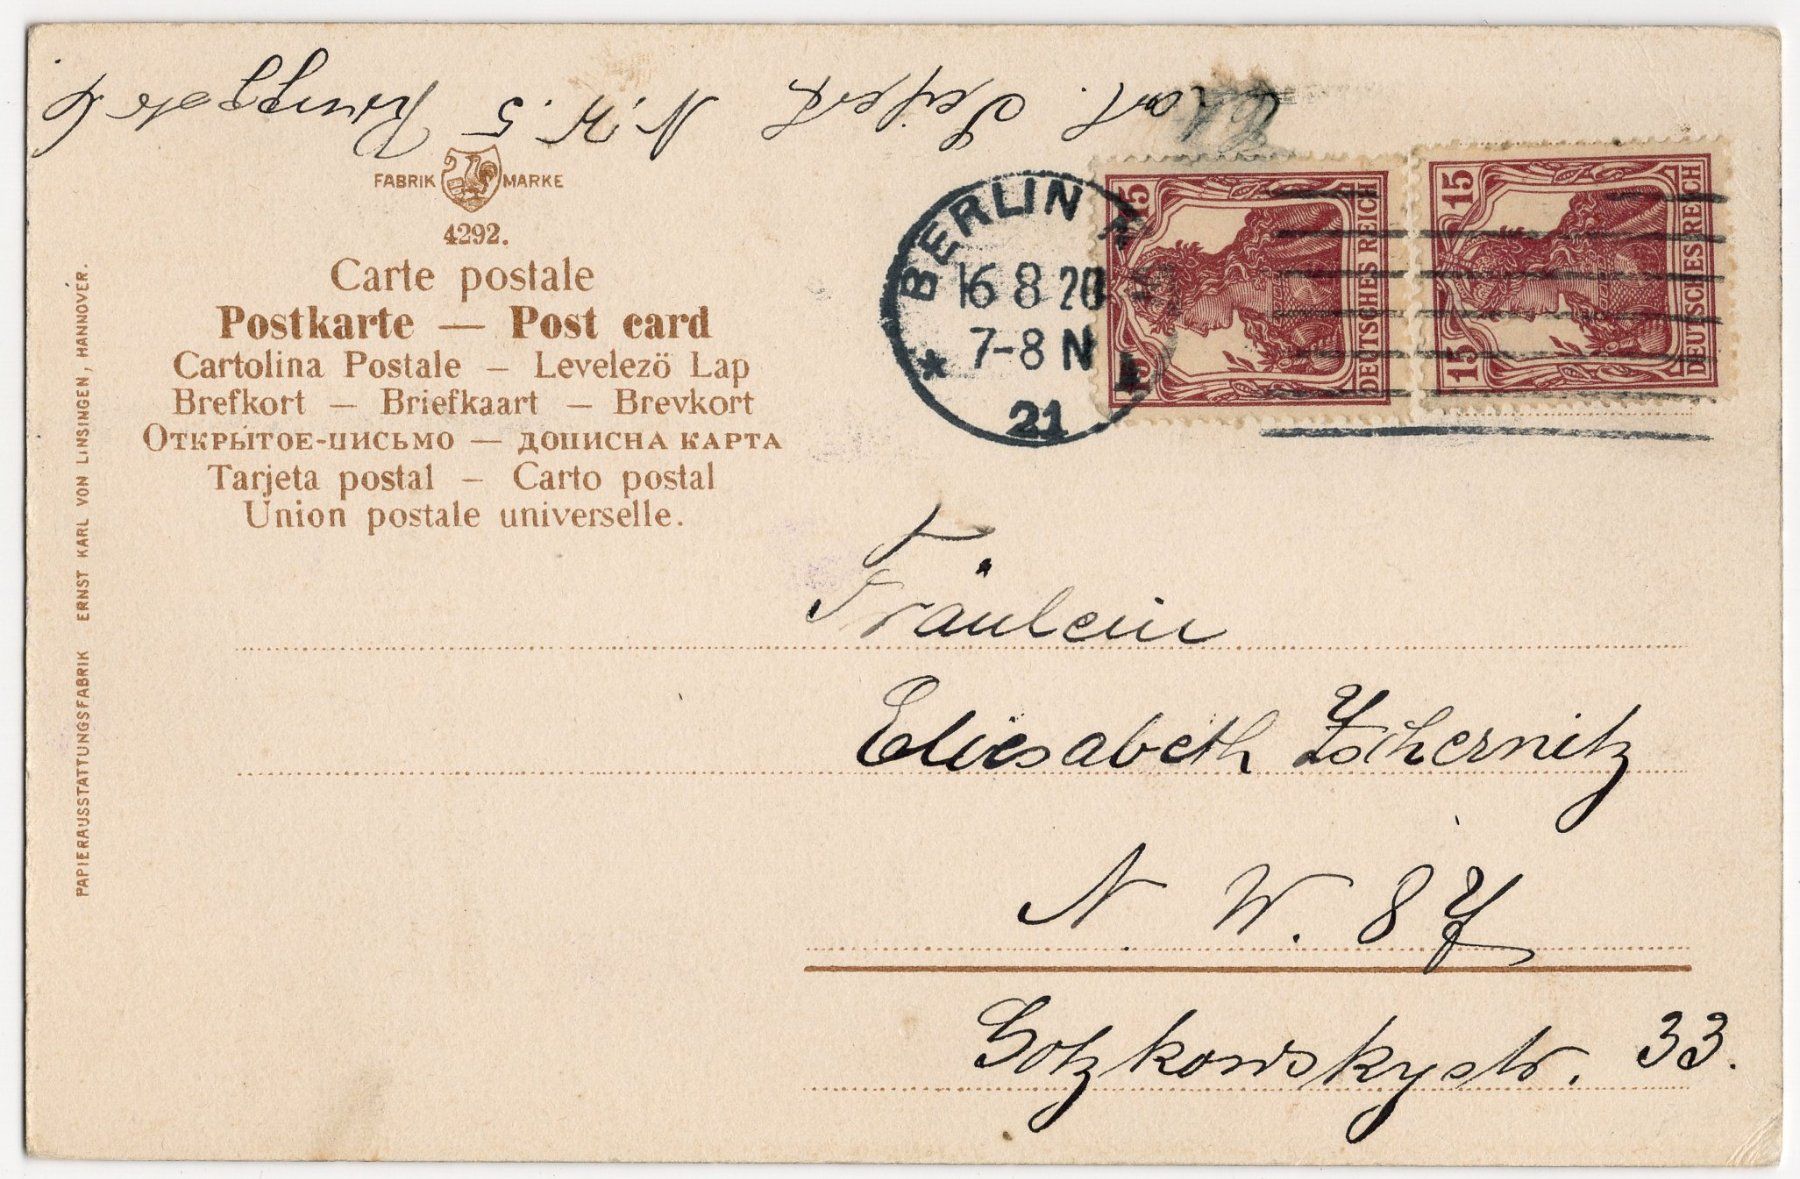 Karl Seifert N.W. 5
FABRIK MARKE
4292.
Carte postale
Postkarte — Post card
Cartolina Postale — Levelezö Lap
Brefkort — Briefkaart — Brevkort
Открытое-письмо — дописна карта
Tarjeta postal — Carto postal
Union postale universelle.
PAPIERAUSSTATTUNGSFABRIK ERNST KARL VON LINSINGEN, HANNOVER.
BERLIN
16 8 20
7-8 N
21
15 15
DEUTSCHES REICH
15 15
DEUTSCHES REICH
Fräulein
Eliesabeth Zschernitz
N. W. 87
Gotzkowskystr. 33.